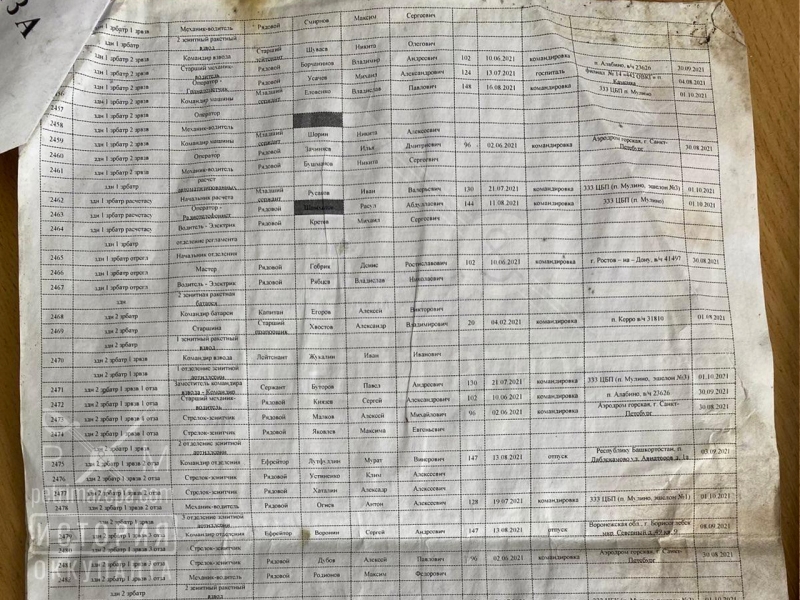 ЗА
здн 1 зрбатр 1 зрвзв Механик-водитель Рядовой Смирнов Максим Сергеевич
здн 1 зрбатр 2 зенитный ракетный взвод
здн 1 зрбатр 2 зрвзв Командир взвода Старший лейтенант Шуваев Никита Олегович
здн 1 зрбатр 2 зрвзв Старший механик-водитель Рядовой Борчанинов Владимир Андреевич 102 10.06.2021 командировка п. Алабино, в/ч 23626 30.09.2021
здн 1 зрбатр 2 зрвзв Оператор - Рядовой Усачев Михаил Александрович 124 13.07.2021 госпиталь 04.08.2021
здн 1 зрбатр 2 зрвзв Командир машины Младший сержант Владислав Павлович 148 16.08.2021 командировка 333 ЦБП п. Мулино 01.10.2021
2457 здн 1 зрбатр 2 зрвзв Оператор
2458 здн 1 зрбатр 2 зрвзв Механик-водитель Шорин Никита Алексеевич
2459 здн 1 зрбатр 2 зрвзв Командир машины Младший сержант Илья Дмитриевич 96 02.06.2021 командировка Аэродром горская, г. Санкт-Петебург 30.08.2021
2460 здн 1 зрбатр 2 зрвзв Оператор Рядовой Никита Сергеевич
2461 здн 1 зрбатр 2 зрвзв Механик-водитель Рядовой
здн 1 зрбатр расчет автоматизированных
2462 здн 1 зрбатр расчетасу Начальник расчета Младший сержант Русаков Иван Валерьевич 130 21.07.2021 командировка 333 ЦБП (п. Мулино, эшелон №3) 01.10.2021
2463 здн 1 зрбатр расчетасу Оператор - Радиотелефонист Рядовой Расул Абдуллаевич 144 11.08.2021 командировка 333 ЦБП (п. Мулино) 01.10.2021
2464 здн 1 зрбатр расчетасу Водитель - Электрик Рядовой Кретов Михаил Сергеевич
здн 1 зрбатр отделение регламента
2465 здн 1 зрбатр отрегл Начальник отделения
2466 здн 1 зрбатр отрегл Мастер Рядовой Гобрик Денис Ростиславович 102 10.06.2021 командировка г. Ростов – на – Дону, в/ч 41497 30.08.2021
2467 здн 1 зрбатр отрегл Водитель - Электрик Рядовой Рябцев Владислав Николаевич
здн 2 зенитная ракетная батарея
2468 здн 2 зрбатр Командир батареи Капитан Егоров Алексей Викторович
2469 здн 2 зрбатр Старшина Старший прапорщик Хвостов Александр Владимирович 20 04.02.2021 командировка п. Керро в/ч 31810
здн 2 зрбатр 1 зенитный ракетный взвод
2470 здн 2 зрбатр 1 зрвзв Командир взвода Лейтенант Жухалин Иван Иванович
здн 2 зрбатр 1 зрвзв 1 отделение зенитной артиллерии
2471 здн 2 зрбатр 1 зрвзв 1 отза Заместитель командира взвода - Командир Сержант Буторов Павел Андреевич 130 21.07.2021 командировка 333 ЦБП (п. Мулино, эшелон №3) 01.10.2021
2472 здн 2 зрбатр 1 зрвзв 1 отза Старший механик-водитель Рядовой Князев Сергей Александрович 102 10.06.2021 командировка п. Алабино, в/ч 23626 30.09.2021
2473 здн 2 зрбатр 1 зрвзв 1 отза Стрелок-зенитчик Рядовой Малков Алексей Михайлович 96 02.06.2021 командировка Аэродром горская, г. Санкт-Петебург 30.08.2021
2474 здн 2 зрбатр 1 зрвзв 1 отза Стрелок-зенитчик Рядовой Яковлев Максим Евгеньевич
здн 2 зрбатр 1 зрвзв 2 отделение зенитной артиллерии
2475 здн 2 зрбатр 1 зрвзв 2 отза Командир отделения Ефрейтор Лутфуллин Мурат Винерович 147 13.08.2021 отпуск Республика Башкортостан, 03.09.2021
2476 здн 2 зрбатр 1 зрвзв 2 отза Стрелок-зенитчик Рядовой Устиненко Клим Алексеевич
2477 здн 2 зрбатр 1 зрвзв 2 отза Стрелок-зенитчик Рядовой Хаталин Александр Алексеевич
2478 здн 2 зрбатр 1 зрвзв 2 отза Механик-водитель Рядовой Огнев Антон Алексеевич 128 19.07.2021 командировка 333 ЦБП (п. Мулино, эшелон №1) 01.10.2021
здн 2 зрбатр 1 зрвзв 3 отделение зенитной артиллерии
2479 здн 2 зрбатр 1 зрвзв 3 отза Командир отделения Ефрейтор Воронин Сергей Андреевич 147 13.08.2021 отпуск Воронежская обл., г. Борисоглебск мкр. Северный 08.09.2021
2480 здн 2 зрбатр 1 зрвзв 3 отза Стрелок-зенитчик
2481 здн 2 зрбатр 1 зрвзв 3 отза Стрелок-зенитчик Рядовой Дубов Алексей Павлович 96 02.06.2021 командировка Аэродром горская, г. Санкт-Петебург 30.08.2021
2482 здн 2 зрбатр 1 зрвзв 3 отза Механик-водитель Рядовой Родионов Максим Федорович
здн 2 зрбатр 2 зенитный ракетный взвод
ИСТОРИЯ
ОККУПАНТА